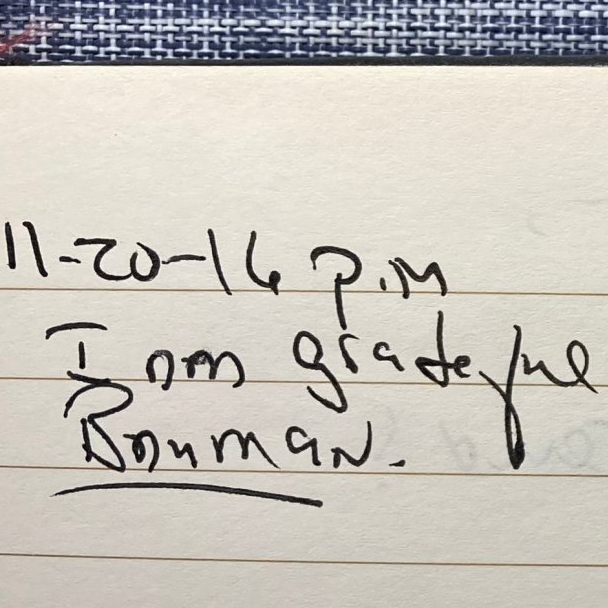 11-20-16 p.m
I am grateful
Bauman.